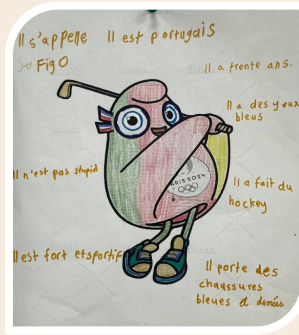 Il s'appelle Il est portugais
Fig O
Il a trente ans.
Il a des yeux
bleus
Il n'est pas stupid
PARIS 2024
Il a fait du
hockey
Il est fort et sportif
Il porte des
chaussures
bleues et dorées